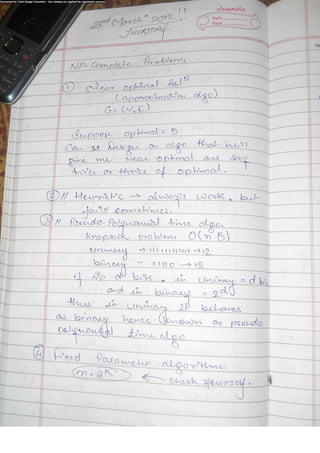 22nd March 2012 !!
THURSDAY
classmate
Date
Page
NP-Complete Problem.
① Near optimal Solⁿ
(approximation algo)
G = (V, E)
Suppose optimal = 5
Can u Design an algo that will
give me near optimal ans say
twice or thrice of optimal.
② // Heuristic → always work, but
fails sometimes.
③ // Pseudo-Polynomial time algo.
Knapsack problem O(nB)
uninary → 111111111111 → 12
binary → 1100 → 12
if i/p d bits, in uninary = d
and in binary = 2^d
thus it uninary it behaves
as binary hence known as pseudo
polynomial time algo
④ Fixed Parameter algorithm.
n = 2^k ← check yourself.